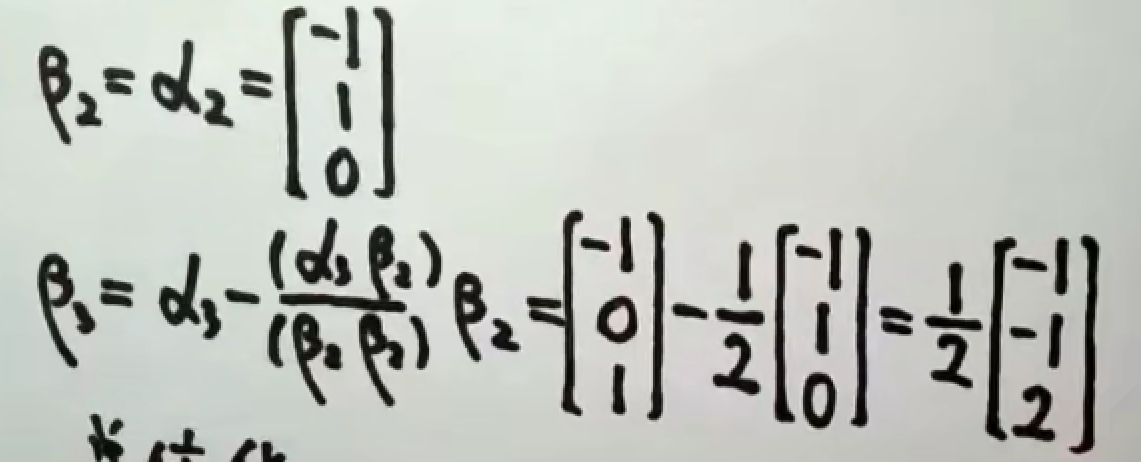 β₂ = α₂ = [-1 1 0]
β₃ = α₃ - (α₃ β₂)/(β₂ β₂) β₂ = [-1 0 1] - 1/2 [-1 1 0] = 1/2 [-1 -1 2]